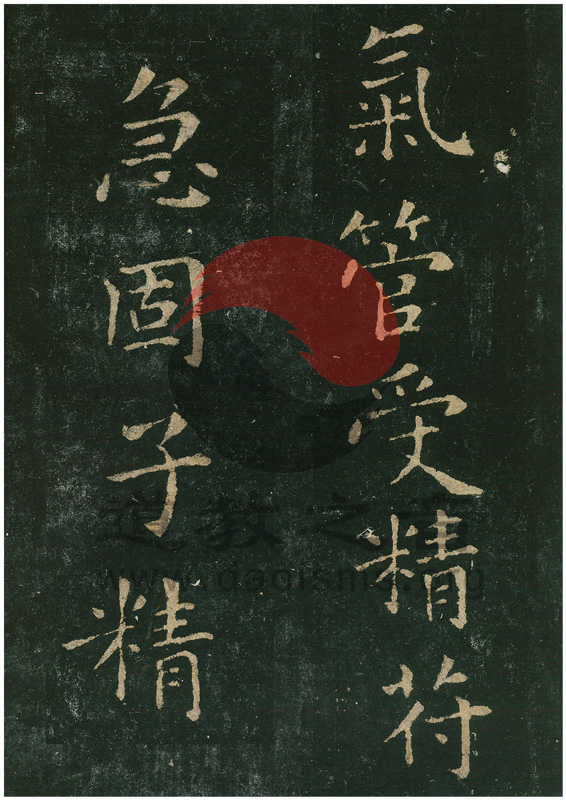 氣管受精符
急固子精
道教之音
www.daoisms.org